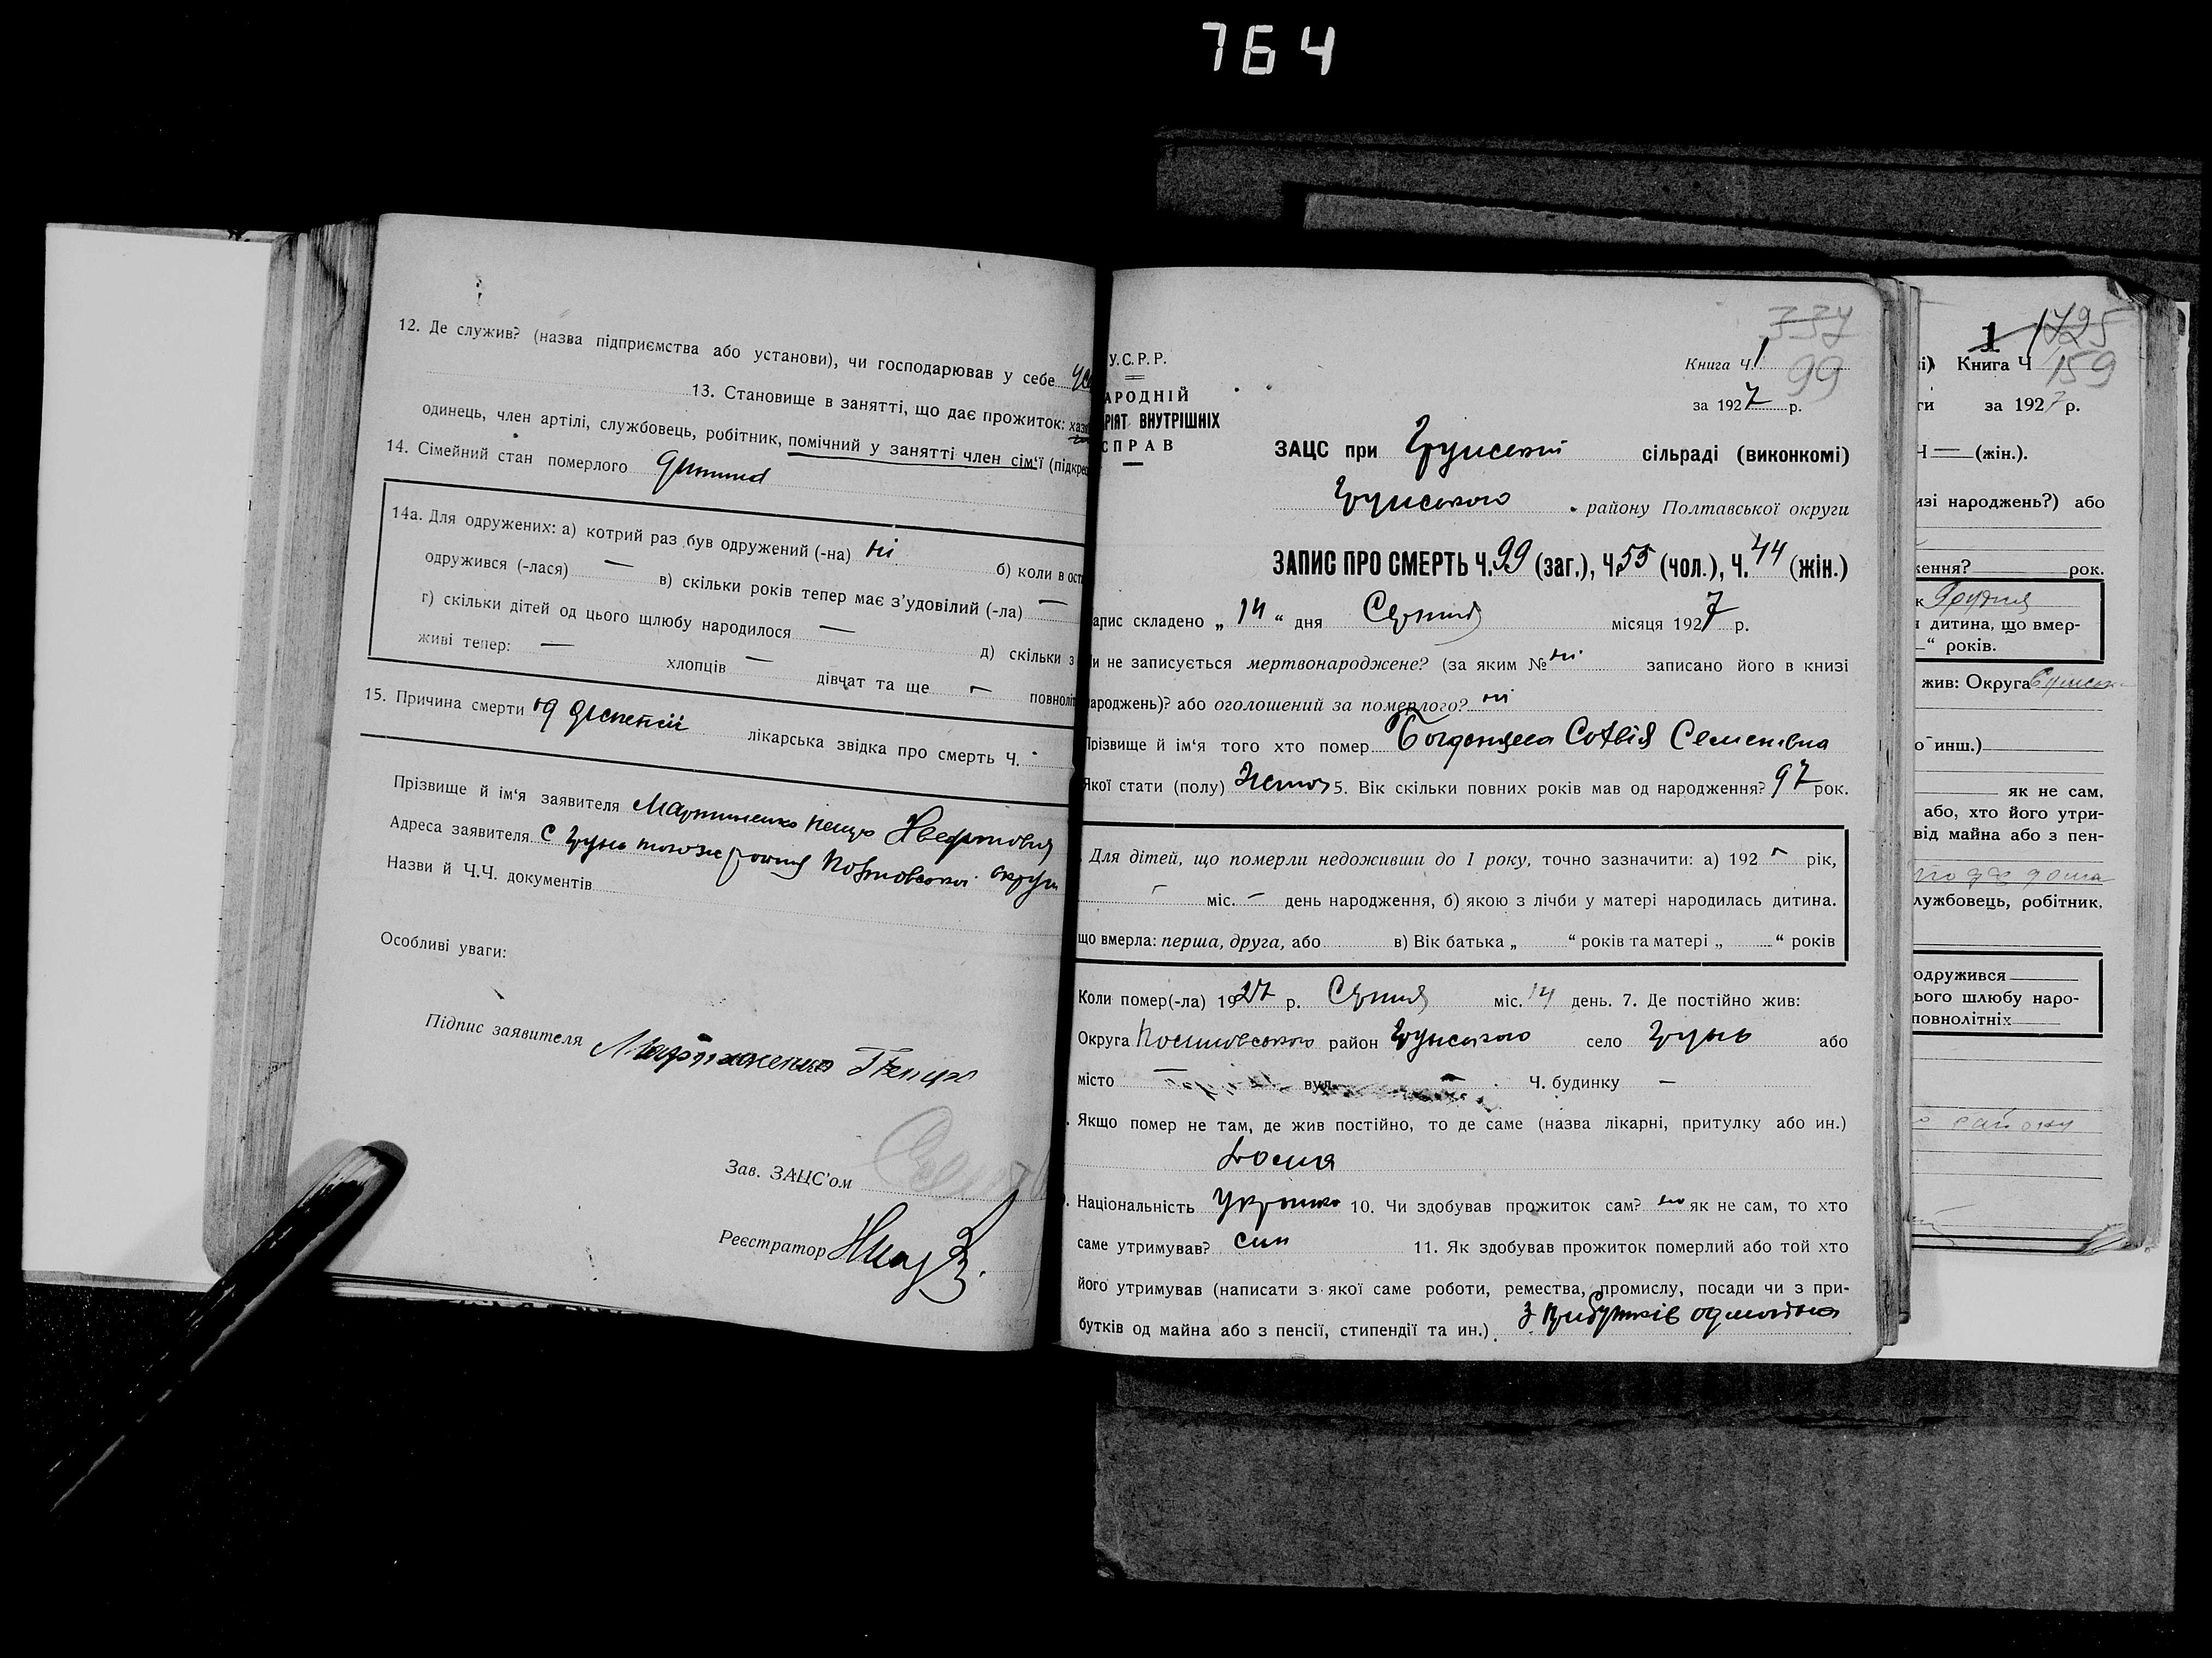 764
12. Де служив? (назва підприємства або установи), чи господарював у себе
13. Становище в занятті, що дає прожиток: хазя
одинець, член артілі, службовець, робітник, помічний у занятті член сім'ї (підкрес
14. Сімейний стан померлого дитина
14а. Для одружених: а) котрий раз був одружений (-на) ні б) коли в ост
одружився (-лася) — в) скільки років тепер має з'удовілий (-ла) —
г) скільки дітей од цього щлюбу народилося — д) скільки з
живі тепер: — хлопців — дівчат та ще — повноліт
15. Причина смерти од лікарська звідка про смерть Ч.
Прізвище й ім'я заявителя Мартиненко
Адреса заявителя с Грунь того ж округи
Назви й Ч.Ч. документів
Особливі уваги:
Підпис заявителя Мартиненко
Зав. ЗАЦС'ом
Реєстратор
У.С.Р.Р.
АРОДНІЙ
РІЯТ ВНУТРІШНІХ
СПРАВ
337
Книга Ч. 1
99
за 1927 р.
ЗАЦС при Грунській сільраді (виконкомі)
Грунського району Полтавської округи
ЗАПИС ПРО СМЕРТЬ Ч. 99 (заг.), Ч. 55 (чол.), Ч. 44 (жін.)
апис складено „ 14 “ дня Серпня місяця 1927 р.
и не записується мертвонароджене? (за яким № ні записано його в книзі
ароджень)? або оголошений за померлого? ні
різвище й ім'я того хто помер Софія Семенівна
Якої стати (полу) 5. Вік скільки повних років мав од народження? 97 рок.
Для дітей, що померли недоживши до 1 року, точно зазначити: а) 192 – рік,
– міс. – день народження, б) якою з лічби у матері народилась дитина.
що вмерла: перша, друга, або в) Вік батька „ “ років та матері „ “ років
Коли помер(-ла) 1927 р. Серпня міс. 14 день. 7. Де постійно жив:
Округа Полтавського район Грунського село Грунь або
місто – вул. – Ч. будинку –
Якщо помер не там, де жив постійно, то де саме (назва лікарні, притулку або ин.)
Дома
Національність Українка 10. Чи здобував прожиток сам? ні як не сам, то хто
саме утримував? син 11. Як здобував прожиток померлий або той хто
його утримував (написати з якої саме роботи, ремества, промислу, посади чи з при-
бутків од майна або з пенсії, стипендії та ин.). з прибутків од майна
1 1725
і) Книга Ч 159
ги за 1927 р.
Ч — (жін.).
изі народжень?) або
ження? рок.
к Грудня
я дитина, що вмер-
“ років.
жив: Округа Сумськ
о инш.)
як не сам,
або, хто його утри-
від майна або з пен-
лужбовець, робітник,
одружився
ього шлюбу наро-
повнолітніх